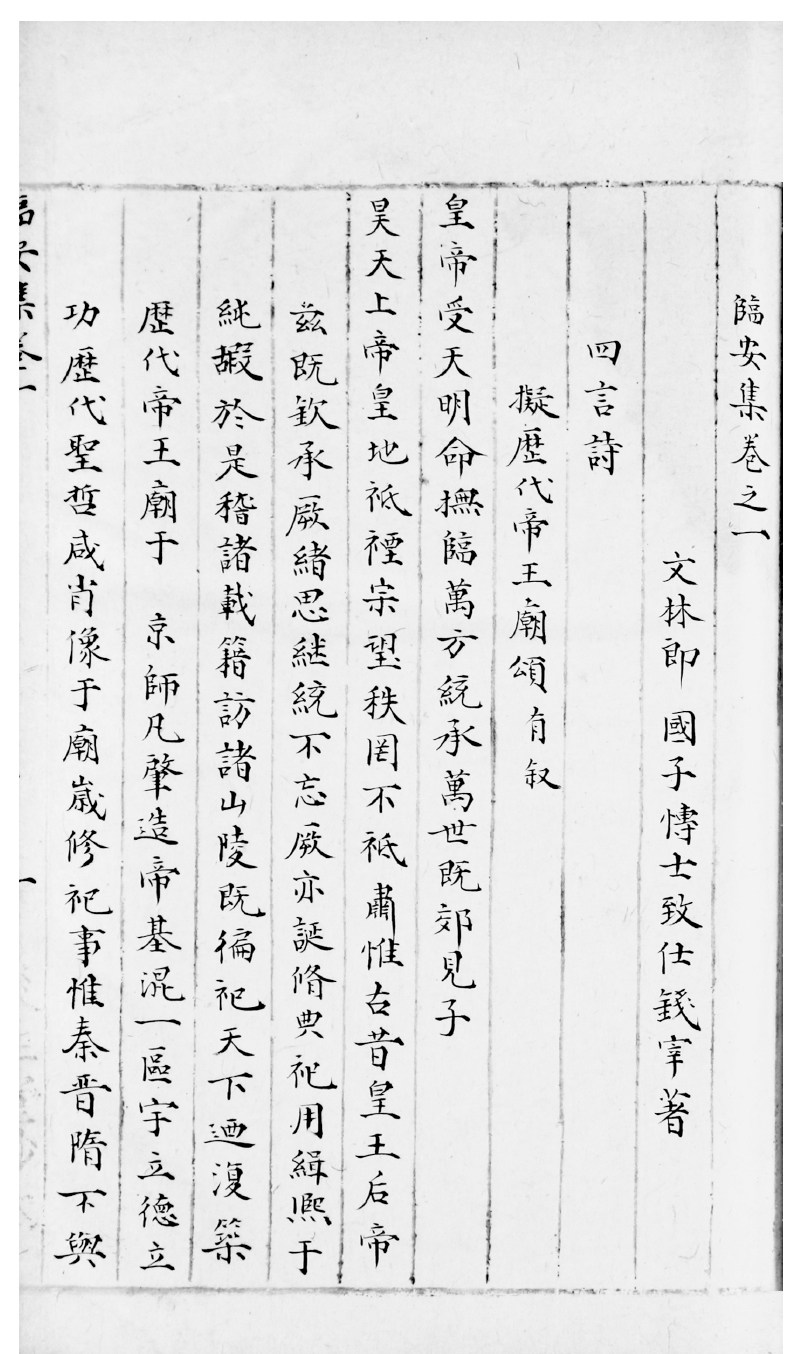 臨安集卷之一
文林郎　國子博士致仕錢宰著
四言詩
擬歷代帝王廟頌有叙
皇帝受天明命撫臨萬方統承萬世既郊見子
昊天上帝皇地祗禋宗望秩罔不祗肅惟古昔皇王后帝
茲既欽承厥緒思継統不忘厥亦誕脩典祀用緝熈于
純嘏於是稽諸載籍訪諸山陵既徧祀天下迺復築
歷代帝王廟于　京師凡肇造帝基混一區宇立德立
功歷代聖哲咸肖像于廟歲修祀事惟秦晋隋不與
臨安集卷一
一